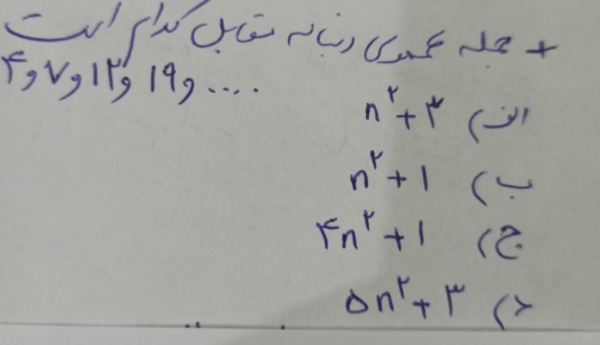 + جمله عمومی دنباله مقابل کدام است
۴ و ۷ و ۱۲ و ۱۹ و ....
الف) n²+۳
ب) n²+۱
ج) ۴n²+۱
د) ۵n²+۳